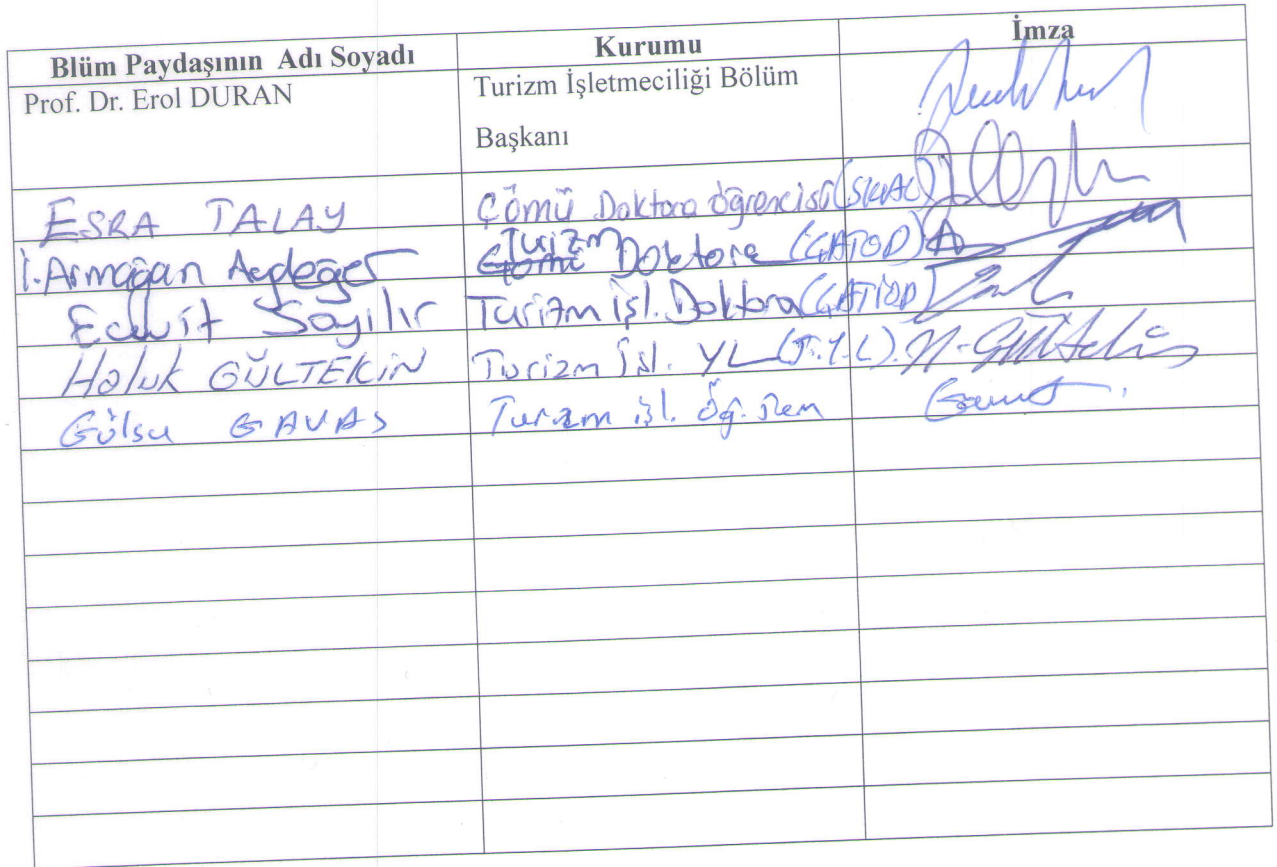 Blüm Paydaşının Adı Soyadı Kurumu İmza
Prof. Dr. Erol DURAN Turizm İşletmeciliği Bölüm
Başkanı
ESRA TALAY ÇÖMÜ Doktora öğrencisi (SKAL)
İ. Armağan Turizm Doktora (ÇATOD)
Ecevit Sayılır Turizm işl. Doktora (ÇATİOD)
Haluk GÜLTEKİN Turizm İşl. YL (T.Y.L). H-Gültekin
Gülsu GAVAS Turizm işl. Öğ.